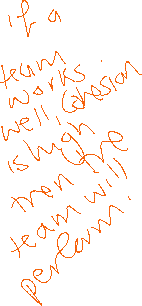 if a
team
works.
well Cohesion
is high
then the
team will
perform.